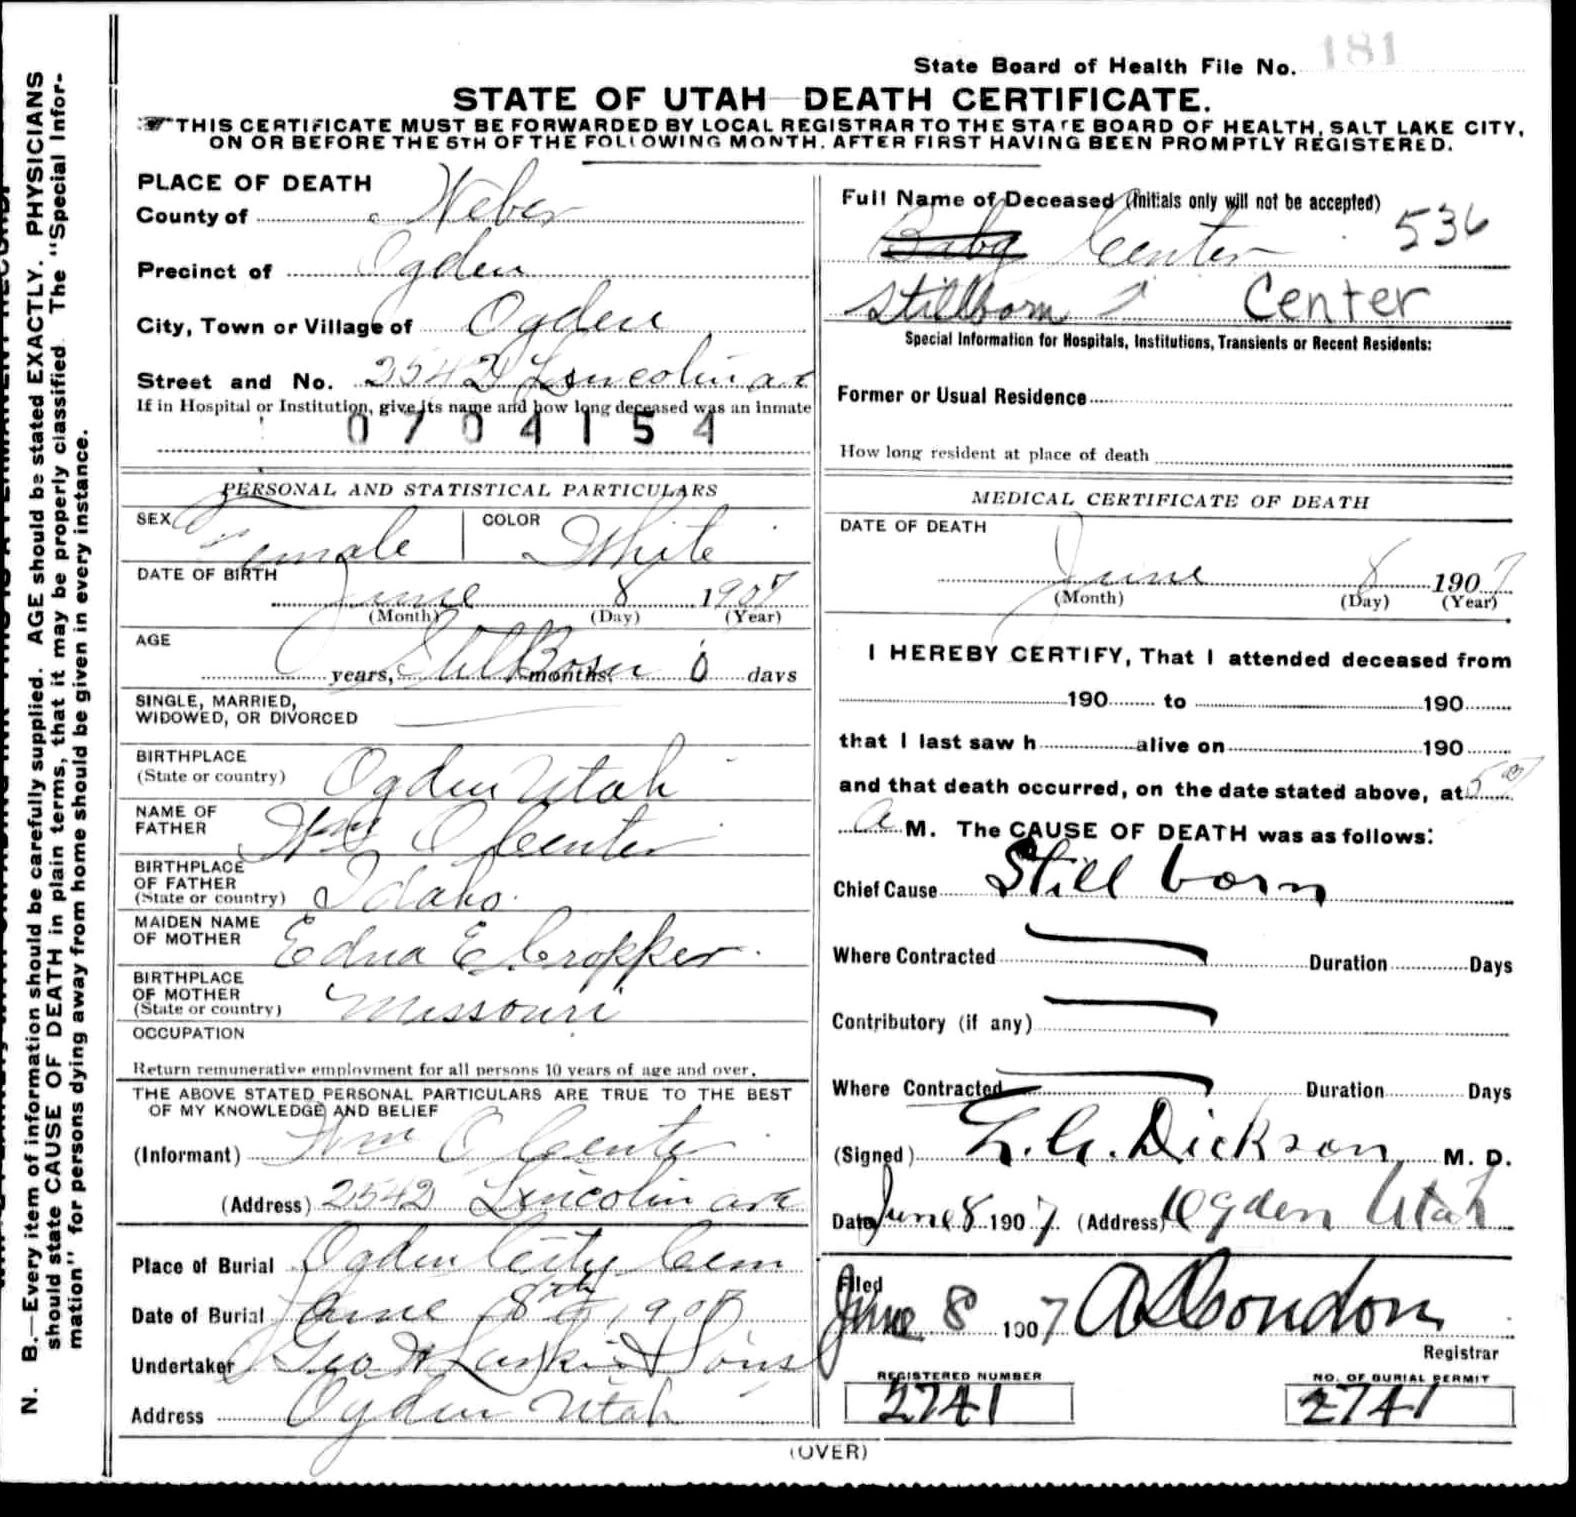 State Board of Health File No. 181
STATE OF UTAH—DEATH CERTIFICATE.
THIS CERTIFICATE MUST BE FORWARDED BY LOCAL REGISTRAR TO THE STATE BOARD OF HEALTH, SALT LAKE CITY,
ON OR BEFORE THE 5TH OF THE FOLLOWING MONTH. AFTER FIRST HAVING BEEN PROMPTLY REGISTERED.
PLACE OF DEATH
County of Weber
Precinct of Ogden
City, Town or Village of Ogden
Street and No. 2542 Lincolin ave
If in Hospital or Institution, give its name and how long deceased was an inmate
0704154
PERSONAL AND STATISTICAL PARTICULARS
SEX Female COLOR White
DATE OF BIRTH
June 8 1907
(Month) (Day) (Year)
AGE
years, StillBorn months, 0 days
SINGLE, MARRIED,
WIDOWED, OR DIVORCED
BIRTHPLACE
(State or country) Ogden Utah
NAME OF
FATHER Wm O Center
BIRTHPLACE
OF FATHER
(State or country) Idaho.
MAIDEN NAME
OF MOTHER Edna E Cropper.
BIRTHPLACE
OF MOTHER
(State or country) Missouri
OCCUPATION
Return remunerative employment for all persons 10 years of age and over.
THE ABOVE STATED PERSONAL PARTICULARS ARE TRUE TO THE BEST
OF MY KNOWLEDGE AND BELIEF
(Informant) Wm O Center
(Address) 2542 Lincolin ave
Place of Burial Ogden City Cem
Date of Burial June 8th 1907
Undertaker Geo W Larkin & Sons
Address Ogden Utah
Full Name of Deceased (Initials only will not be accepted)
Baby Center 536
Stillborn Center
Special Information for Hospitals, Institutions, Transients or Recent Residents:
Former or Usual Residence
How long resident at place of death
MEDICAL CERTIFICATE OF DEATH
DATE OF DEATH
June 8 1907
(Month) (Day) (Year)
I HEREBY CERTIFY, That I attended deceased from
190 to 190
that I last saw h alive on 190
and that death occurred, on the date stated above, at 5
A M. The CAUSE OF DEATH was as follows:
Chief Cause Still born
Where Contracted Duration Days
Contributory (if any)
Where Contracted Duration Days
(Signed) Dickson M. D.
Date June 8 1907. (Address) Ogden Utah
Filed
June 8 1907 Condon
Registrar
REGISTERED NUMBER
2741
NO. OF BURIAL PERMIT
2741
(OVER)
N. B.—Every item of information should be carefully supplied. AGE should be stated EXACTLY. PHYSICIANS
should state CAUSE OF DEATH in plain terms, that it may be properly classified. The "Special Infor-
mation" for persons dying away from home should be given in every instance.